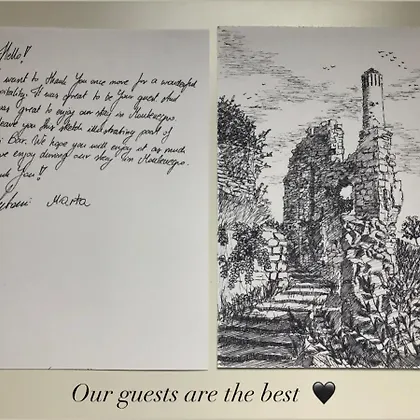 Hello!
want to thank You once more for a wonderful
It was great to be Your guest and
great to enjoy our stay in Montenegro.
leave you this sketch illustrating part of
Bar. We hope you will enjoy it as much
we enjoy during our stay in Montenegro.
You!
Marta
Our guests are the best 🖤